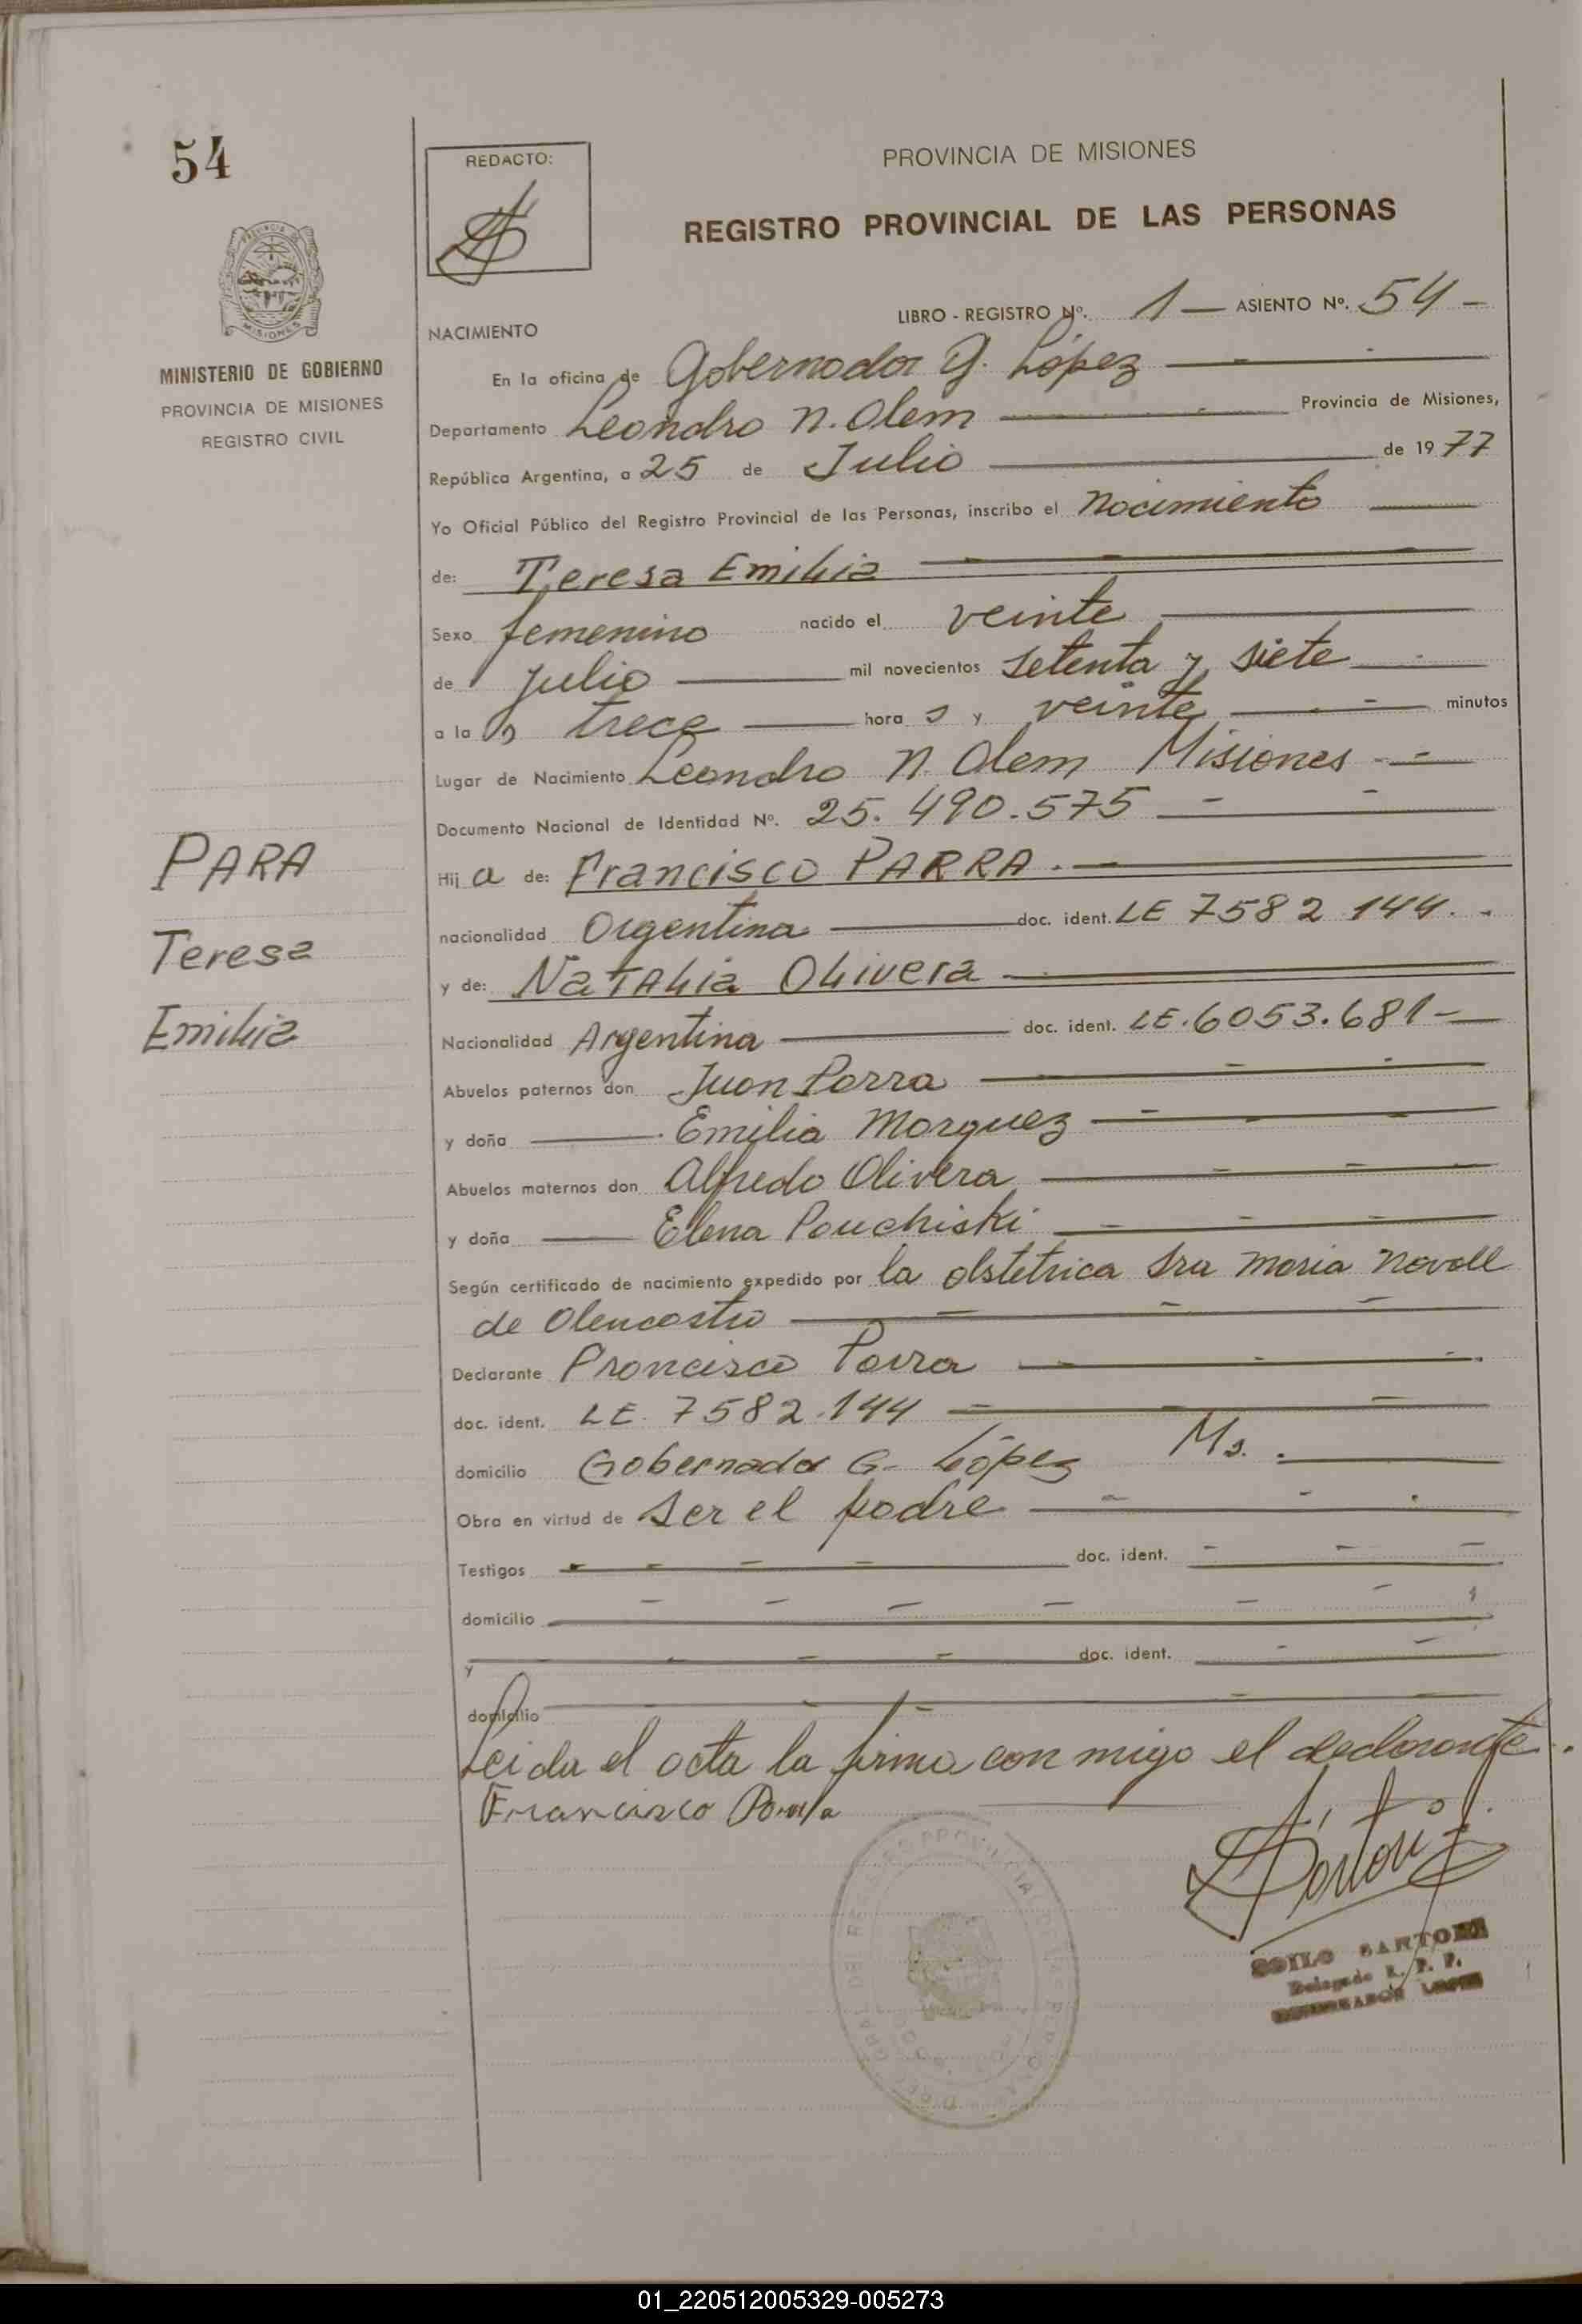 54
REDACTO:
PROVINCIA DE MISIONES
REGISTRO PROVINCIAL DE LAS PERSONAS
MINISTERIO DE GOBIERNO
PROVINCIA DE MISIONES
REGISTRO CIVIL
LIBRO - REGISTRO Nº. 1 — ASIENTO Nº. 54 -
NACIMIENTO
En la oficina de Gobernador G. López
Departamento Leandro N. Alem Provincia de Misiones,
República Argentina, a 25 de Julio de 1977
Yo Oficial Público del Registro Provincial de las Personas, inscribo el nacimiento
de: Teresa Emilia
Sexo femenino nacido el veinte
de Julio mil novecientos setenta y siete
a las trece horas y veinte minutos
Lugar de Nacimiento Leandro N. Alem Misiones
Documento Nacional de Identidad Nº. 25.490.575
PARA
Teresa
Emilia
Hija de: Francisco PARRA.
nacionalidad Argentina doc. ident. LE 7582 144.
y de: Natalia Olivera
Nacionalidad Argentina doc. ident. LE.6053.681-
Abuelos paternos don Juan Parra
y doña Emilia Marquez
Abuelos maternos don Alfredo Olivera
y doña Elena Pauchiski
Según certificado de nacimiento expedido por la obstetrica Sra Maria
de Alencastro
Declarante Francisco Parra
doc. ident. LE. 7582.144
domicilio Gobernador G. López Ms.
Obra en virtud de ser el padre
Testigos doc. ident.
domicilio
y doc. ident.
domicilio
Leida el acta la firma con migo el declarante.
Francisco Parra
SOILO SARTORI
Delegado R. P. P.
GOBERNADOR LOPEZ
01_220512005329-005273